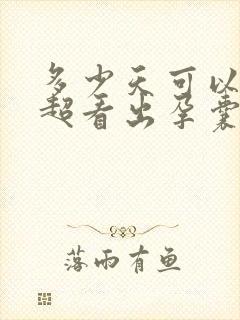 多少天可以
超看出孕囊
落雨有鱼